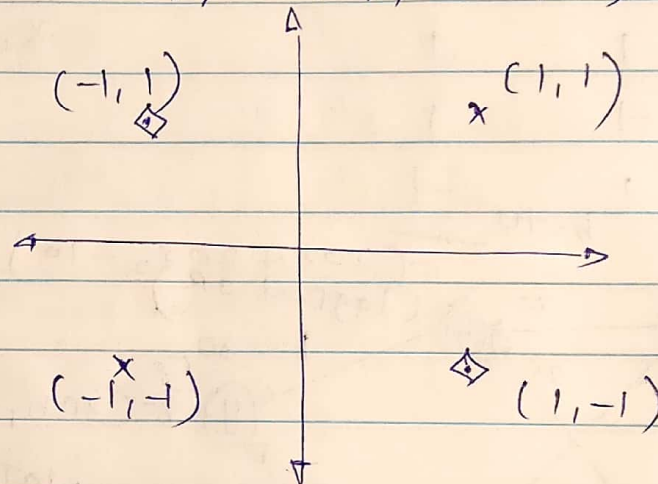 (-1, 1)
(1, 1)
x
x
(-1, -1)
(1, -1)